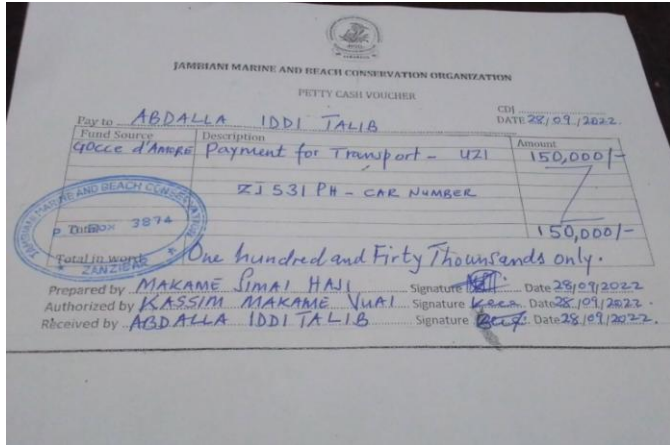 JAMBIANI MARINE AND BEACH CONSERVATION ORGANIZATION
PETTY CASH VOUCHER
CDJ
Pay to ABDALLA IDDI TALIB DATE 28/09/2022.
Fund Source Description Amount
GOCCE d'AMORE Payment for Transport - UZI 150,000/-
ZI 531 PH - CAR NUMBER
JAMBIANI MARINE AND BEACH CONSERVATION
P. O. Box 3874
ZANZIBAR
Total 150,000/-
Total in words One hundred and Firty Thounsands only.
Prepared by MAKAME SIMAI HAJI Signature Date 28/09/2022
Authorized by KASSIM MAKAME VUAI Signature Date 28/09/2022.
Received by ABDALLA IDDI TALIB Signature Date 28/09/2022.